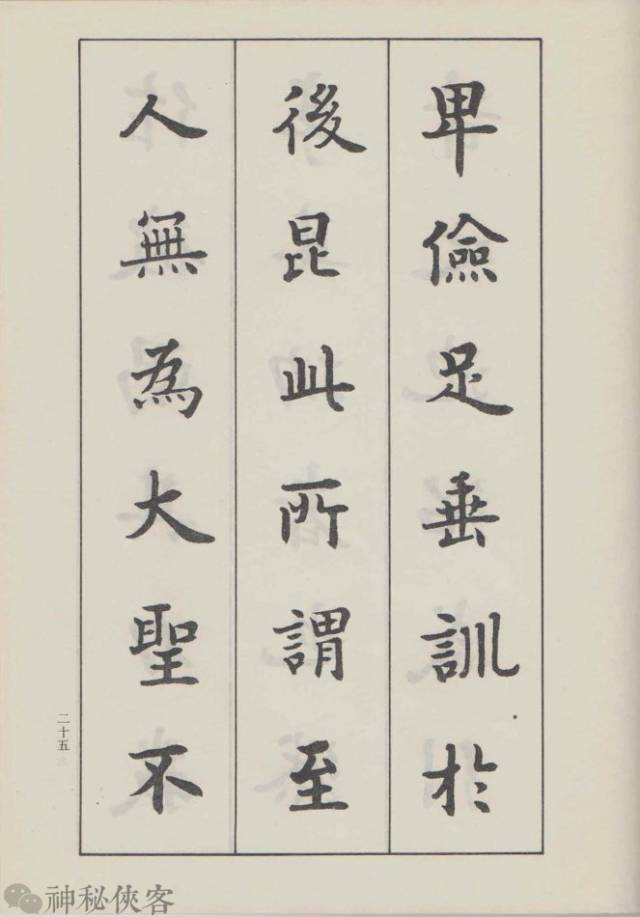 卑儉足垂訓於
後昆此所謂至
人無為大聖不
二十五
神秘俠客